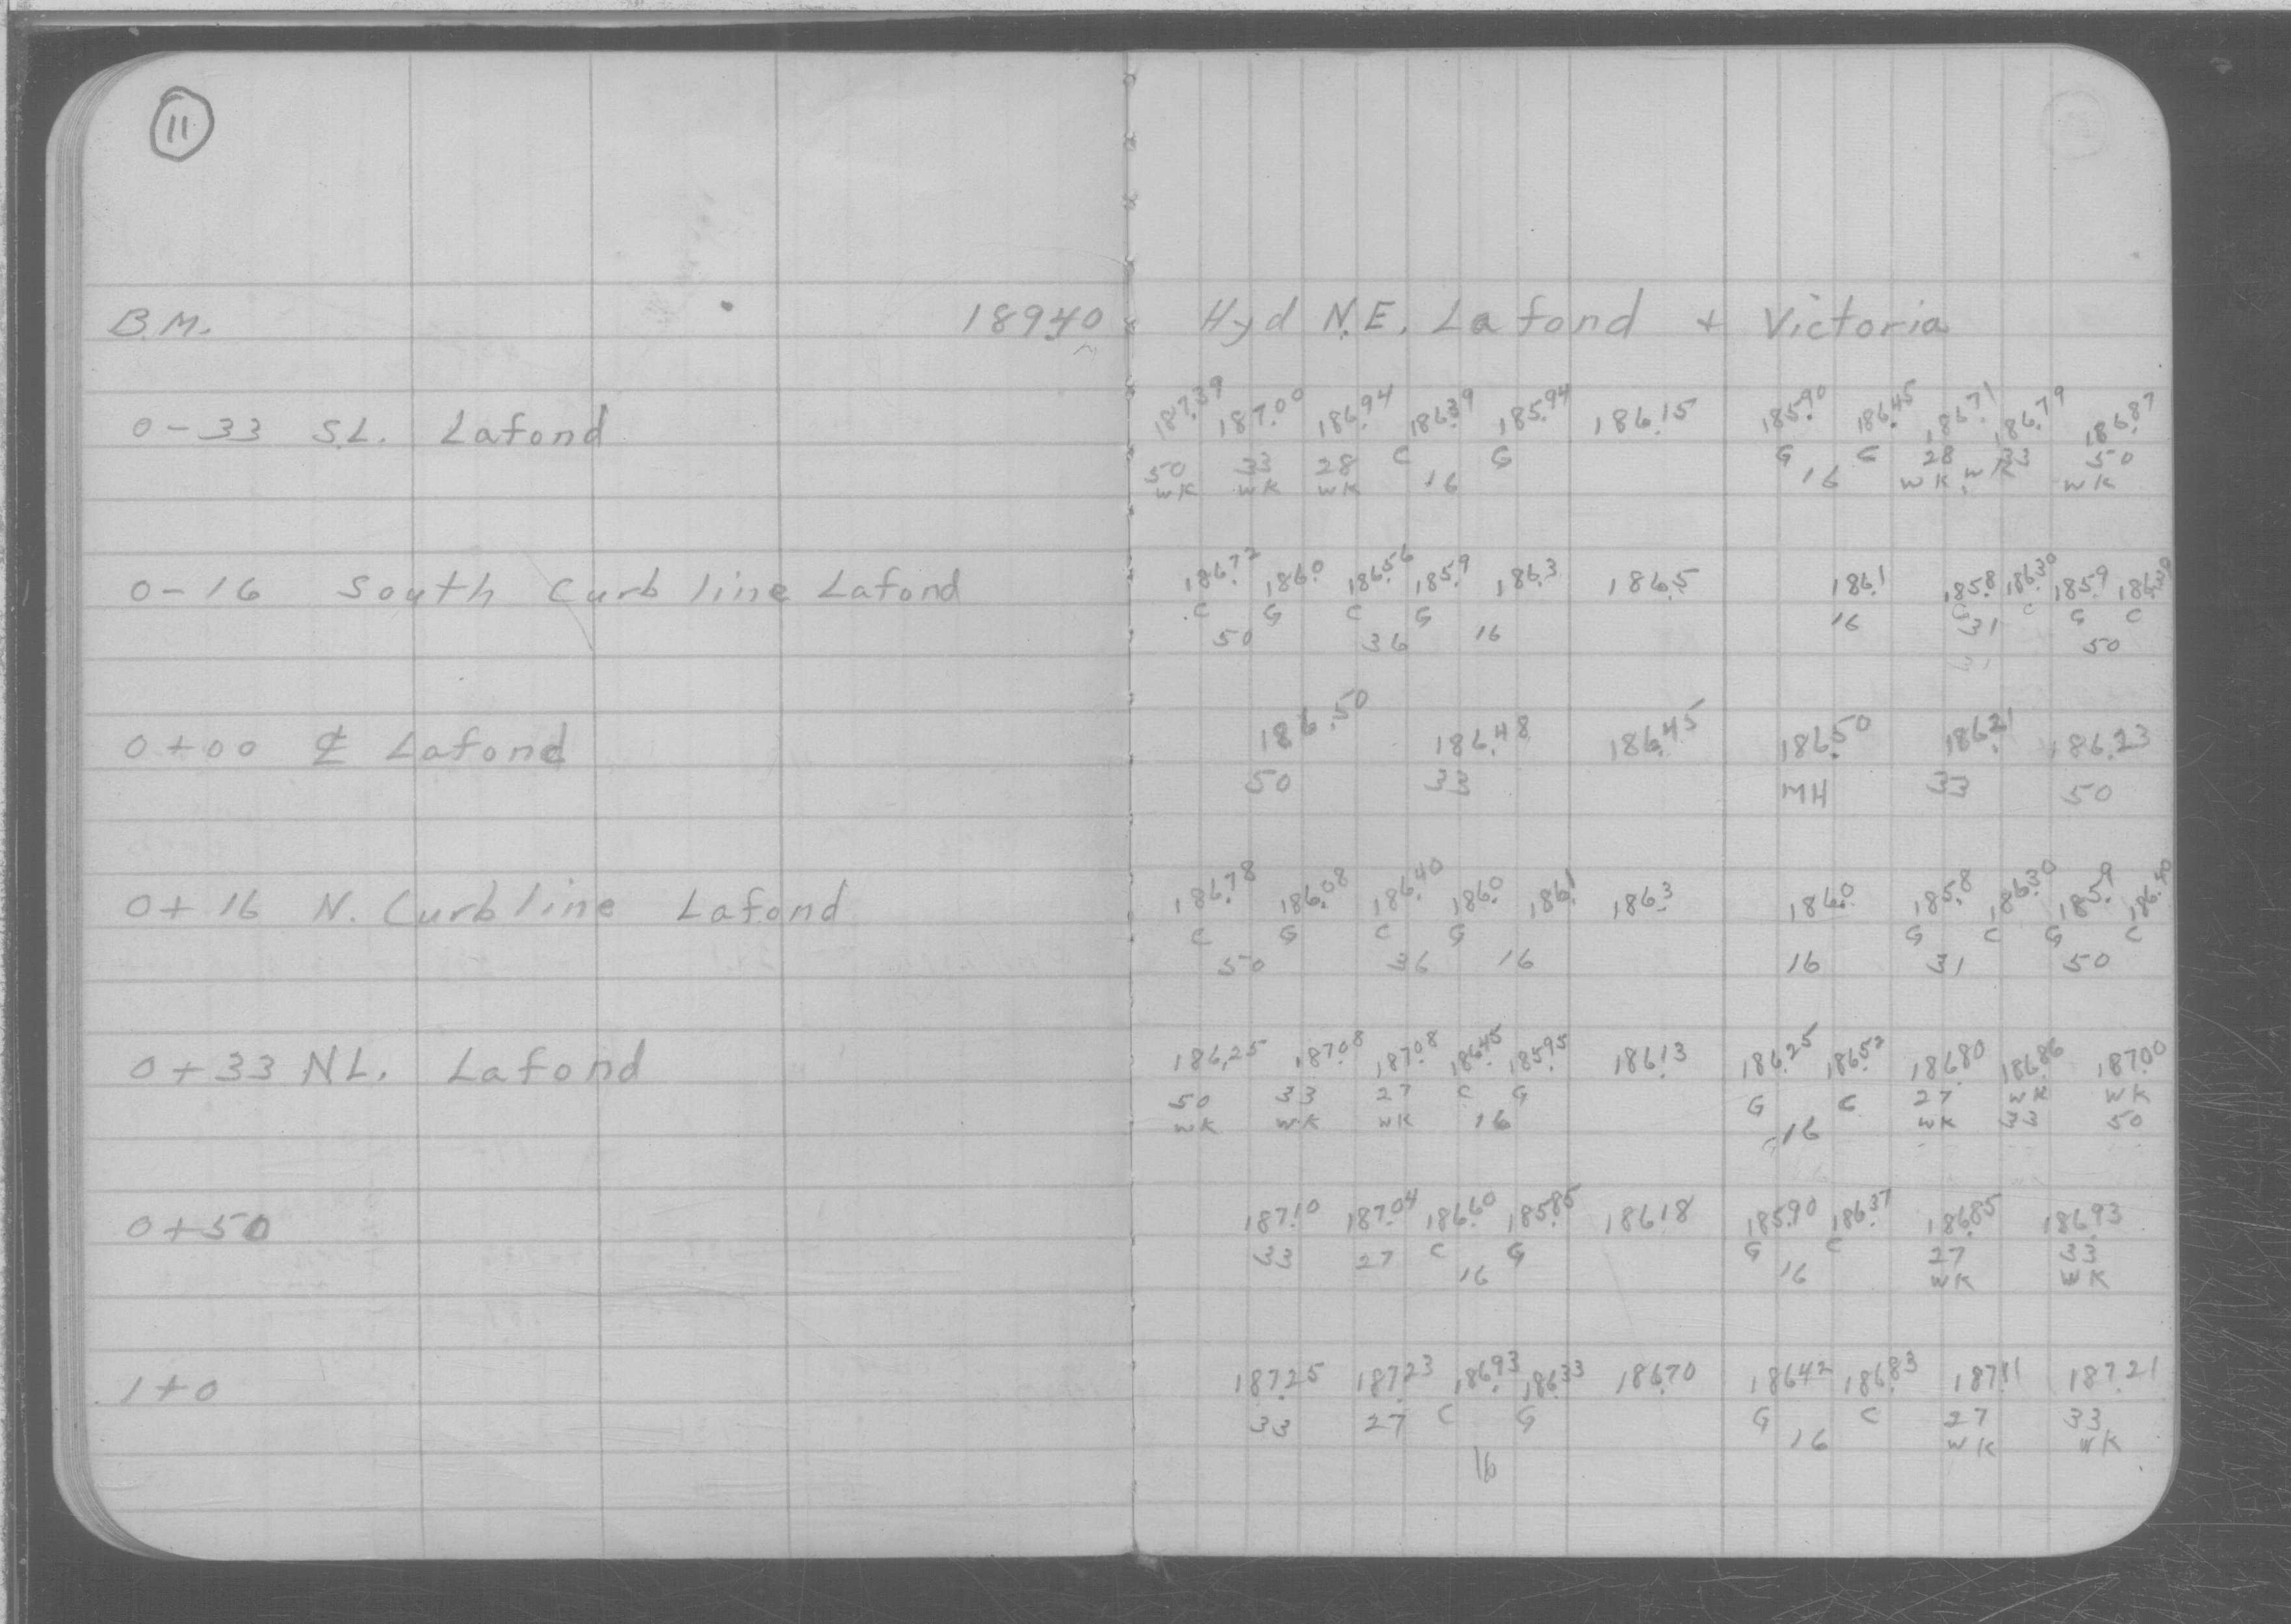 11
B.M. 189.40 Hyd N.E. Lafond + Victoria
0-33 S.L. Lafond 187.39 187.00 186.94 186.39 185.94 186.15 185.90 186.45 186.71 186.79 186.87
50 33 28 C G G C 28 33 50
WK WK WK 16 16 WK WK WK
0-16 South Curb line Lafond 186.72 186.0 186.56 185.9 186.3 186.5 186.1 185.8 186.30 185.9 186.30
C G C G 16 G C G C
50 36 16 31 50
0+00 ₵ Lafond 186.50 186.48 186.45 186.50 186.21 186.23
50 33 MH 33 50
0+16 N. Curb line Lafond 186.78 186.08 186.40 186.0 186.1 186.3 186.0 185.8 186.30 185.9 186.50
C G C G G C G C
50 36 16 16 31 50
0+33 NL. Lafond 186.25 187.08 187.08 186.45 185.95 186.13 186.25 186.52 186.80 186.86 187.00
50 33 27 C G G C 27 WK WK
WK WK WK 16 16 WK 33 50
0+50 187.10 187.04 186.60 185.85 186.18 185.90 186.37 186.85 186.93
33 27 C G G C 27 33
16 16 WK WK
1+0 187.25 187.23 186.93 186.33 186.70 186.42 186.83 187.11 187.21
33 27 C G G C 27 33
16 16 WK WK